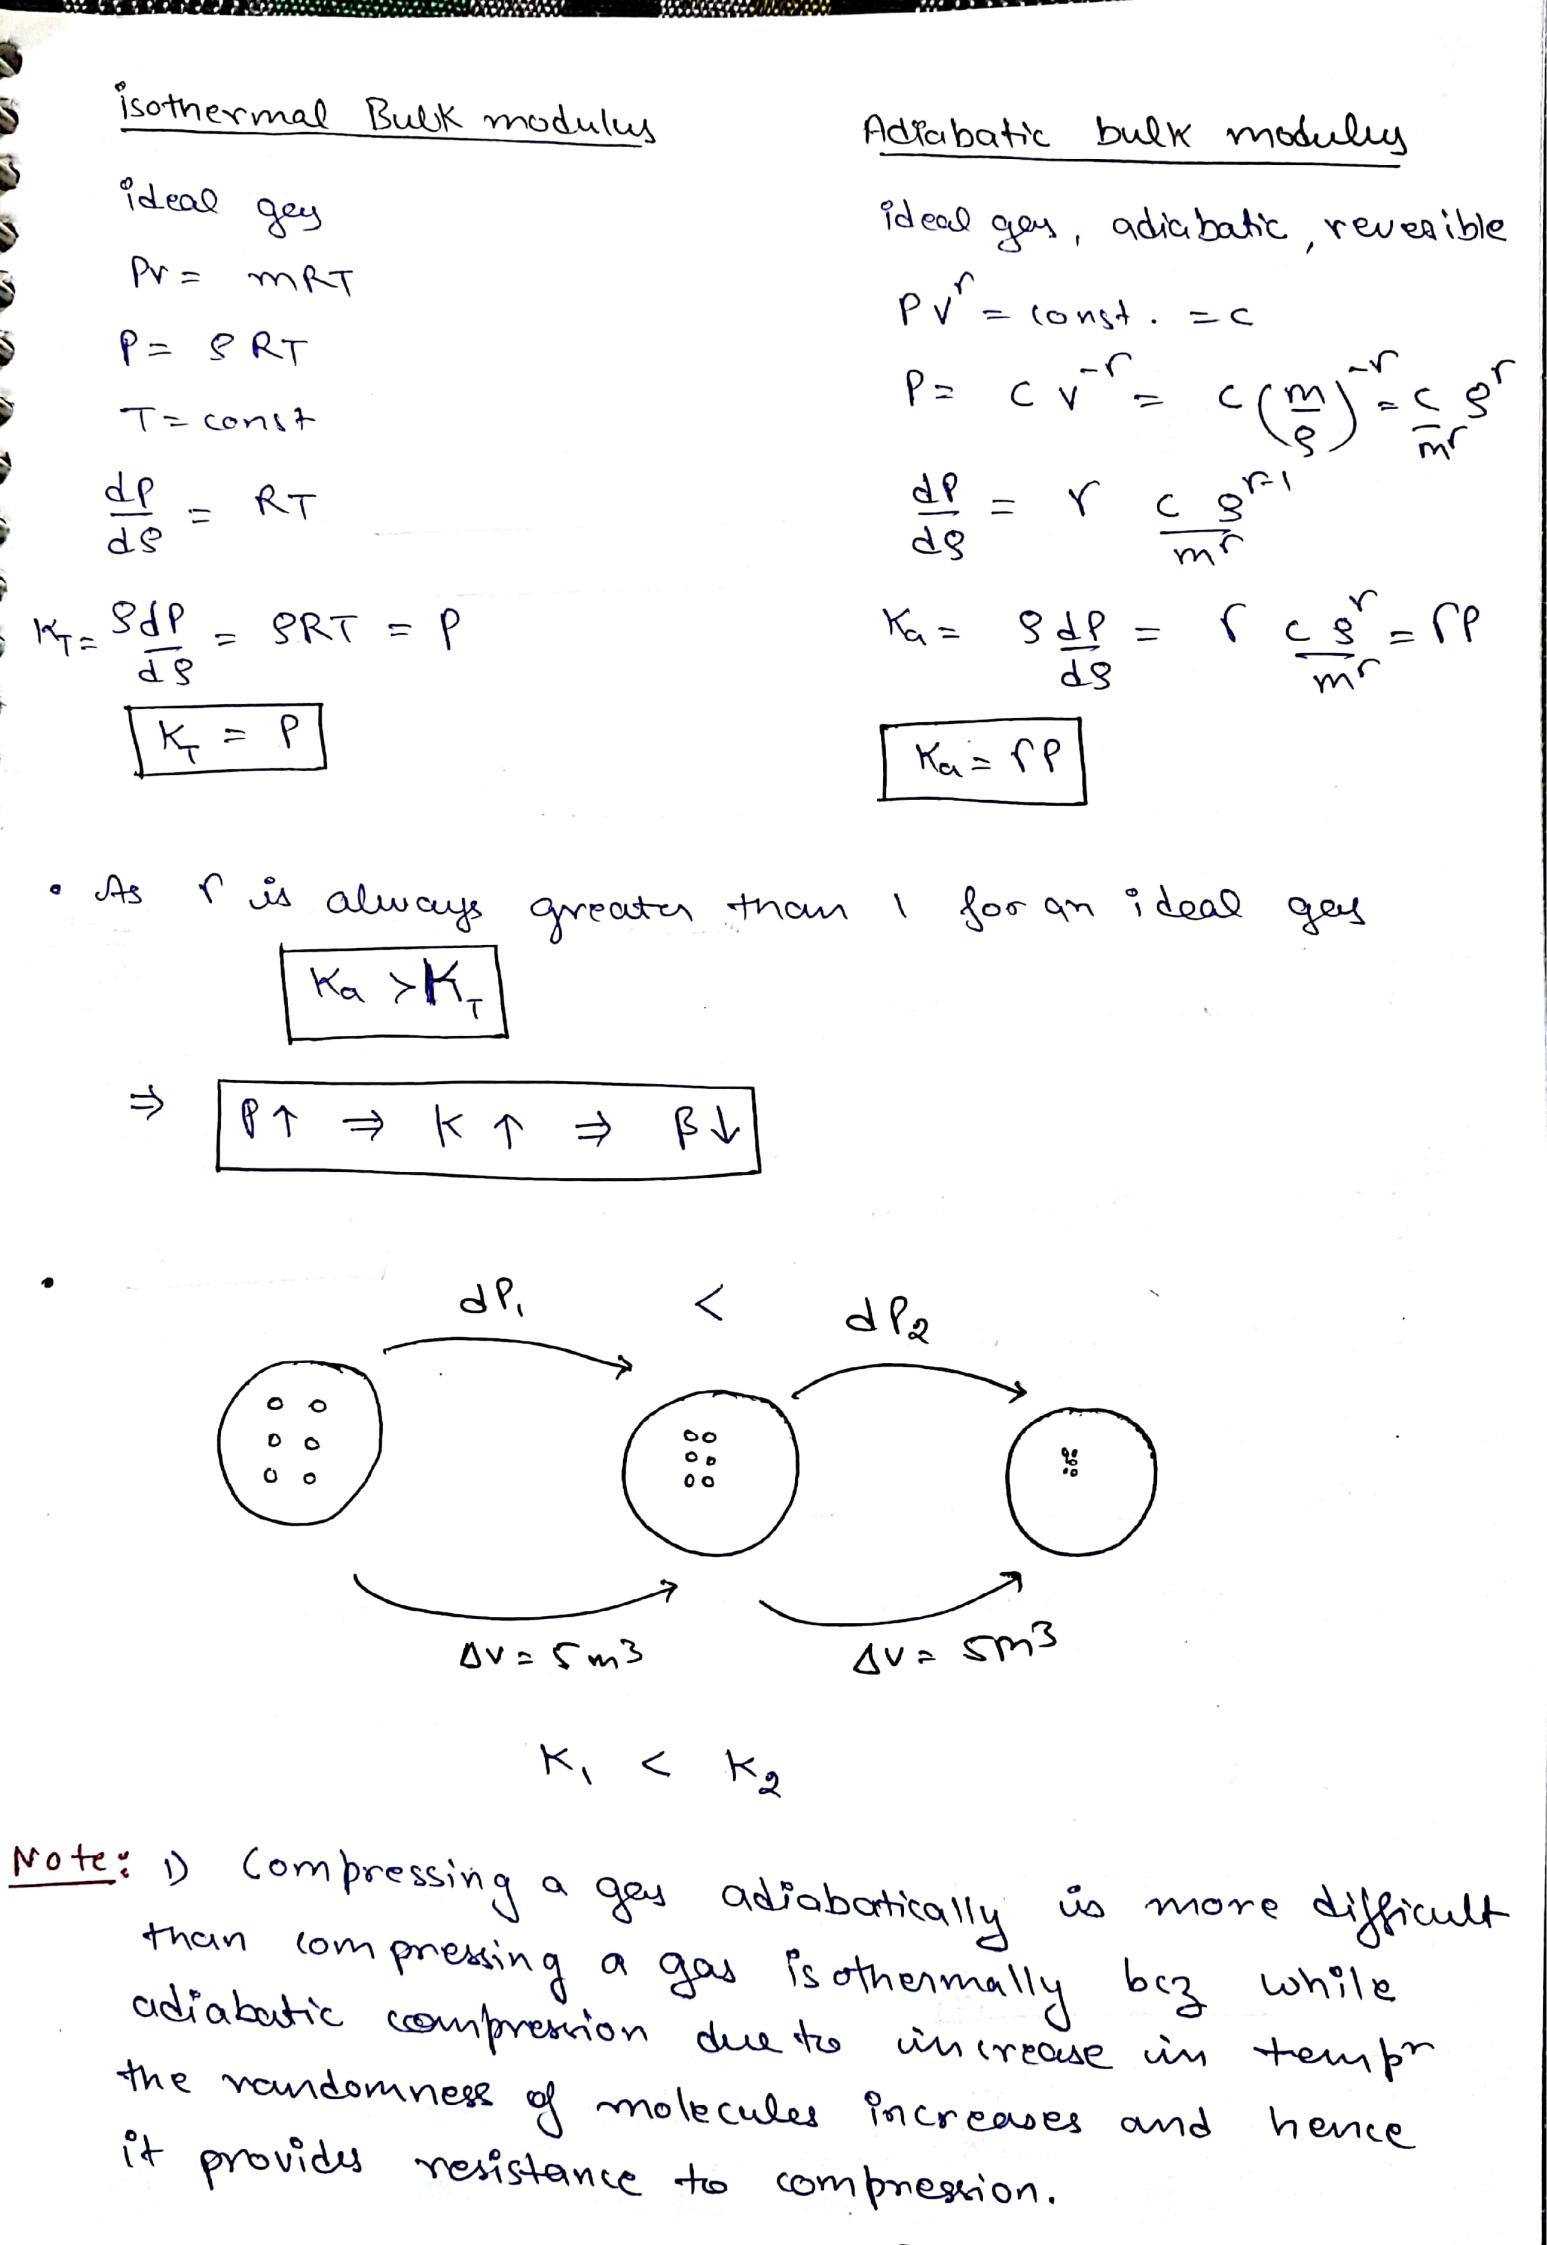 isothermal Bulk modulus
ideal gas
PV = mRT
P = ρRT
T = const
dP/dρ = RT
K_T = ρdP/dρ = ρRT = P
K_T = P
Adiabatic bulk modulus
ideal gas, adiabatic, reversible
PV^γ = const. = c
P = cV^-γ = c(m/ρ)^-γ = c/m^γ ρ^γ
dP/dρ = γ cρ^γ-1/m^γ
Ka = ρdP/dρ = γ cρ^γ/m^γ = γP
Ka = γP
• As γ is always greater than 1 for an ideal gas
Ka > K_T
⇒ P↑ ⇒ K↑ ⇒ β↓
• dP₁ < dP₂
ΔV = 5m3 ΔV = 5m3
K₁ < K₂
Note: 1) Compressing a gas adiabatically is more difficult
than compressing a gas isothermally bcz while
adiabatic compression due to increase in tempr
the randomness of molecules increases and hence
it provides resistance to compression.